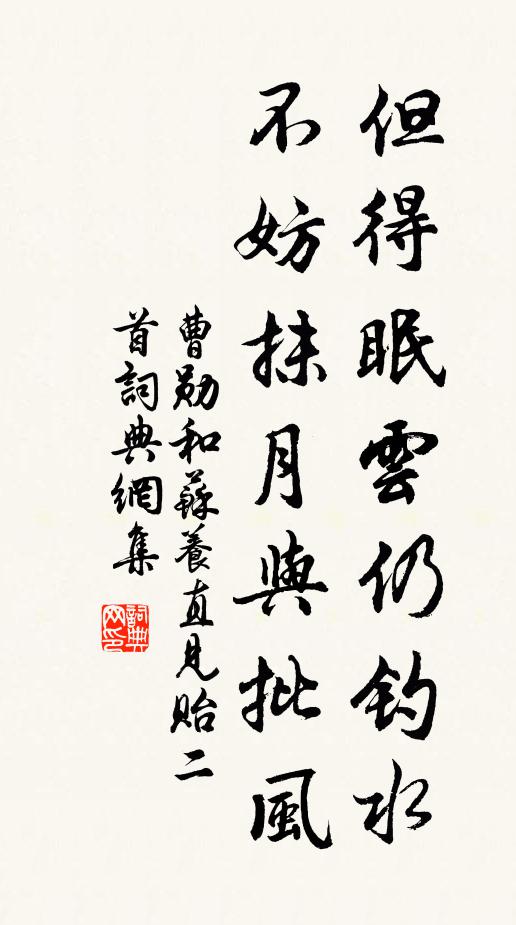 但得眠雲仍釣水
不妨抹月與批風
曹勛和蘇養直見貽二
首詞典網集
詞典
网印